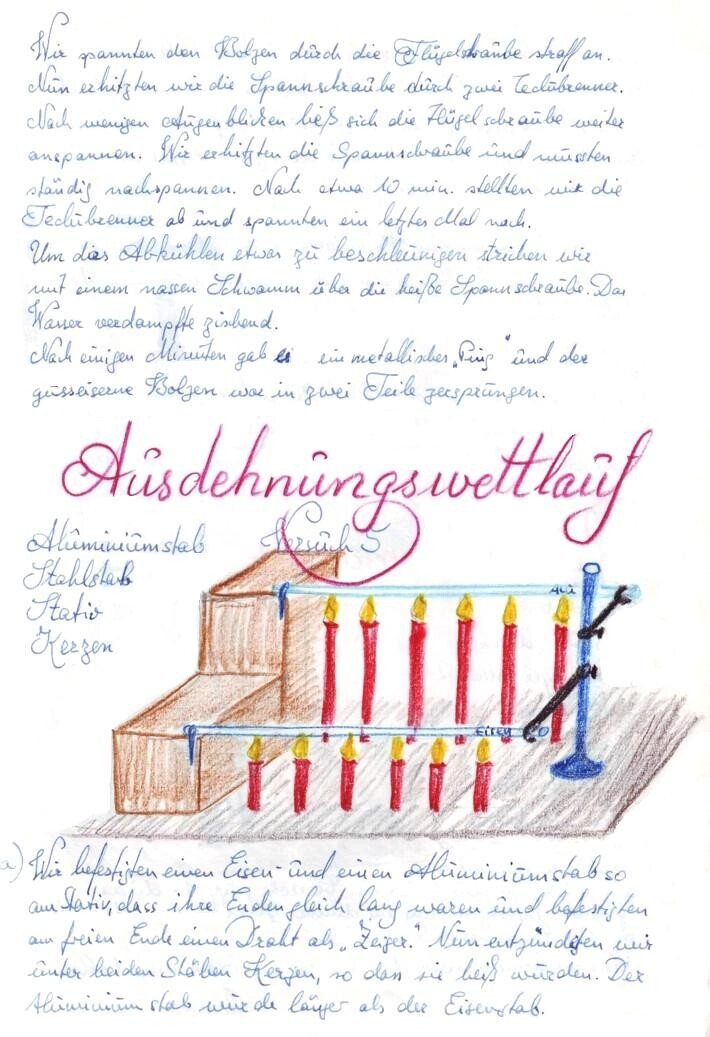 Wir spannten den Bolzen durch die Flügelschraube straff an.
Nun erhitzten wir die Spannschraube durch zwei Teclubrenner.
Nach wenigen Augenblicken ließ sich die Flügelschraube weiter
anspannen. Wir erhitzten die Spannschraube und mussten
ständig nachspannen. Nach etwa 10 min. stellten wir die
Teclubrenner ab und spannten ein letztes Mal nach.
Um das Abkühlen etwas zu beschleunigen strichen wir
mit einem nassen Schwamm über die heiße Spannschraube. Das
Wasser verdampfte zischend.
Nach einigen Minuten gab es ein metallisches „Ping“ und der
gusseiserne Bolzen war in zwei Teile zersprungen.
Ausdehnungswettlauf
Aluminiumstab Versuch 5
Stahlstab
Stativ
Kerzen
Alu
Eisen
a) Wir befestigten einen Eisen- und einen Aluminiumstab so
am Stativ, dass ihre Enden gleich lang waren und befestigten
am freien Ende einen Draht als „Zeiger.“ Nun entzündeten wir
unter beiden Stäben Kerzen, so dass sie heiß wurden. Der
Aluminiumstab wurde länger als der Eisenstab.